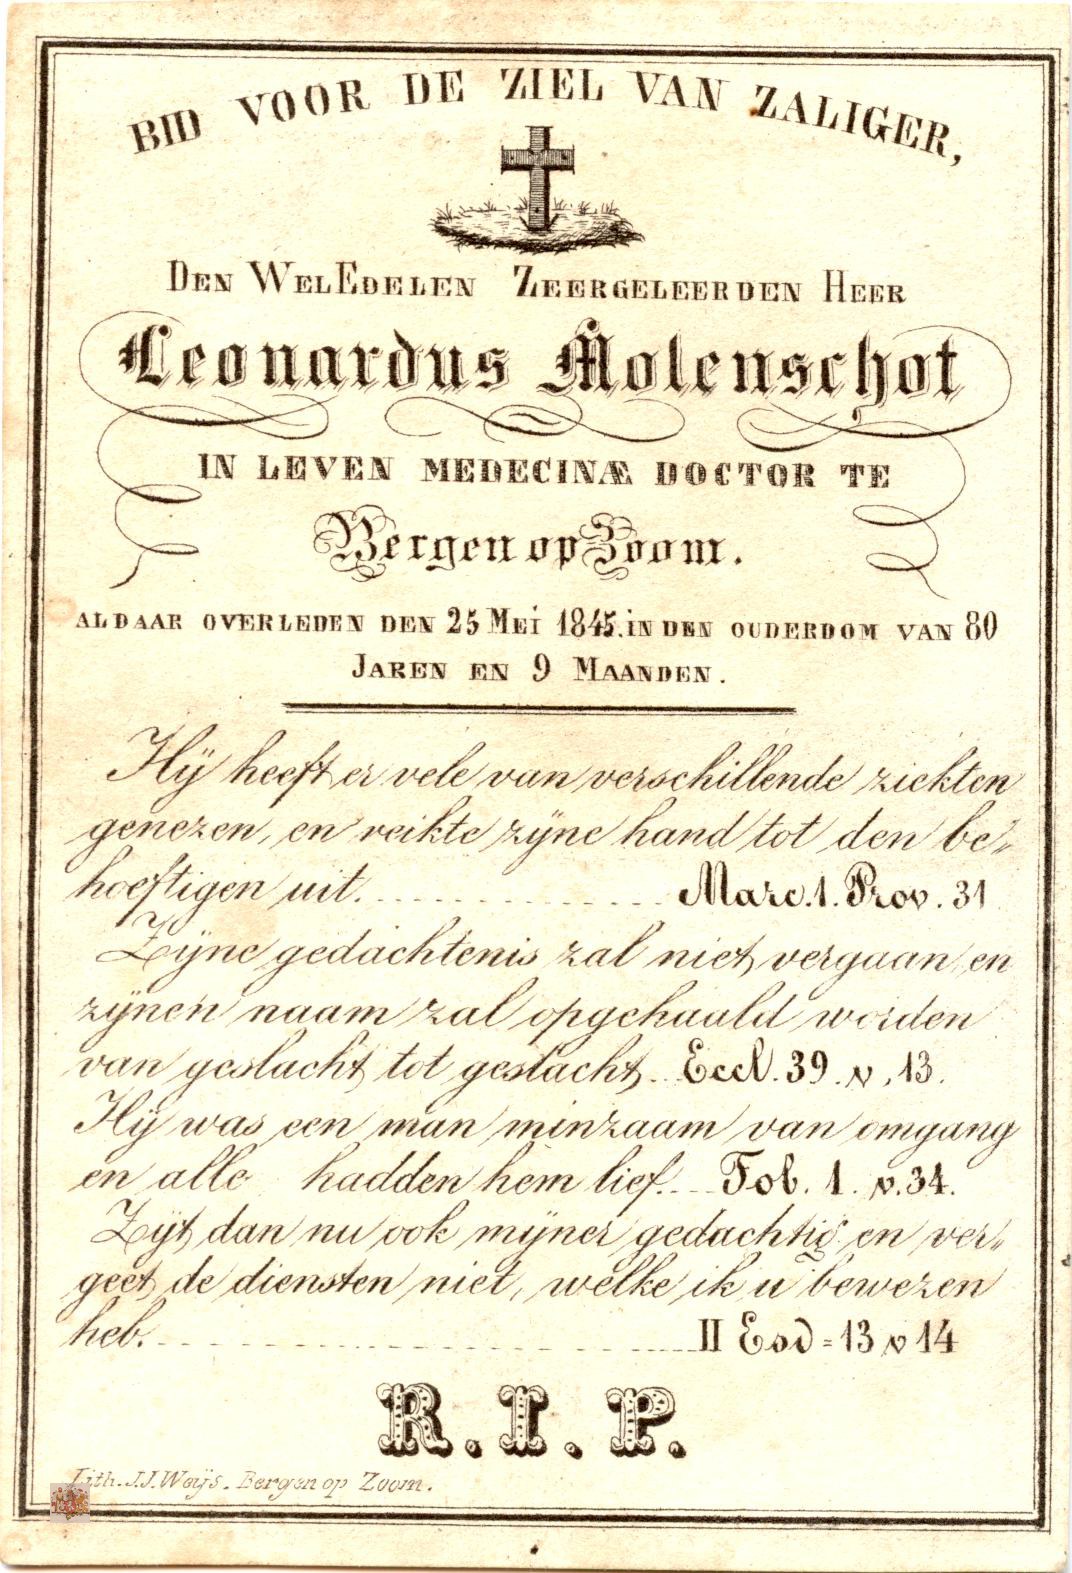 BID VOOR DE ZIEL VAN ZALIGER,
DEN WELEDELEN ZEERGELEERDEN HEER
Leonardus Molenschot
IN LEVEN MEDECINÆ DOCTOR TE
Bergen op Zoom.
ALDAAR OVERLEDEN DEN 25 MEI 1845. IN DEN OUDERDOM VAN 80
JAREN EN 9 MAANDEN.
Hij heeft er vele van verschillende ziekten
genezen, en reikte zijne hand tot den be-
hoeftigen uit. Marc. 1. Prov. 31
Zijne gedachtenis zal niet vergaan en
zijnen naam zal opgehaald worden
van geslacht tot geslacht. Eccl. 39. v. 13.
Hij was een man minzaam van omgang
en alle hadden hem lief. Tob. 1. v. 34.
Zijt dan nu ook mijner gedachtig en ver-
geet de diensten niet, welke ik u bewezen
heb. II Esd = 13 v 14
R. I. P.
Lith. J.J. Weijs. Bergen op Zoom.